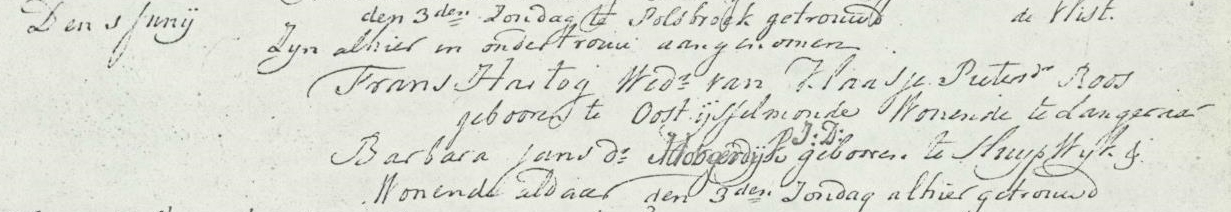 den 3den Zondag te Polsbroek getrouwd de Vlist.
Den 1 Junij Zijn alhier in ondertrouw aangenomen
Frans Hartog Wedr van Klaasje Pietersdr Roos
gebooren te Oost ijsselmonde Wonende te Langeraar
Barbara Jans dr Hoogendijk J:D: gebooren te Sluypwyk &
Wonende aldaar den 3den Zondag alhier getrouwd